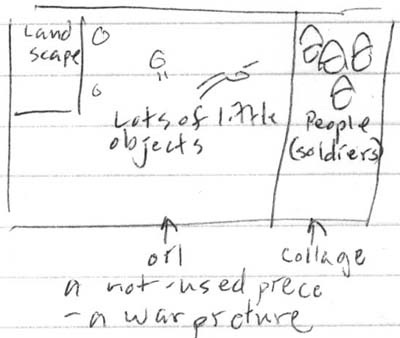 Land
scape
Lots of little
objects
People
(soldiers)
oil
collage
a not-used piece
- a war picture